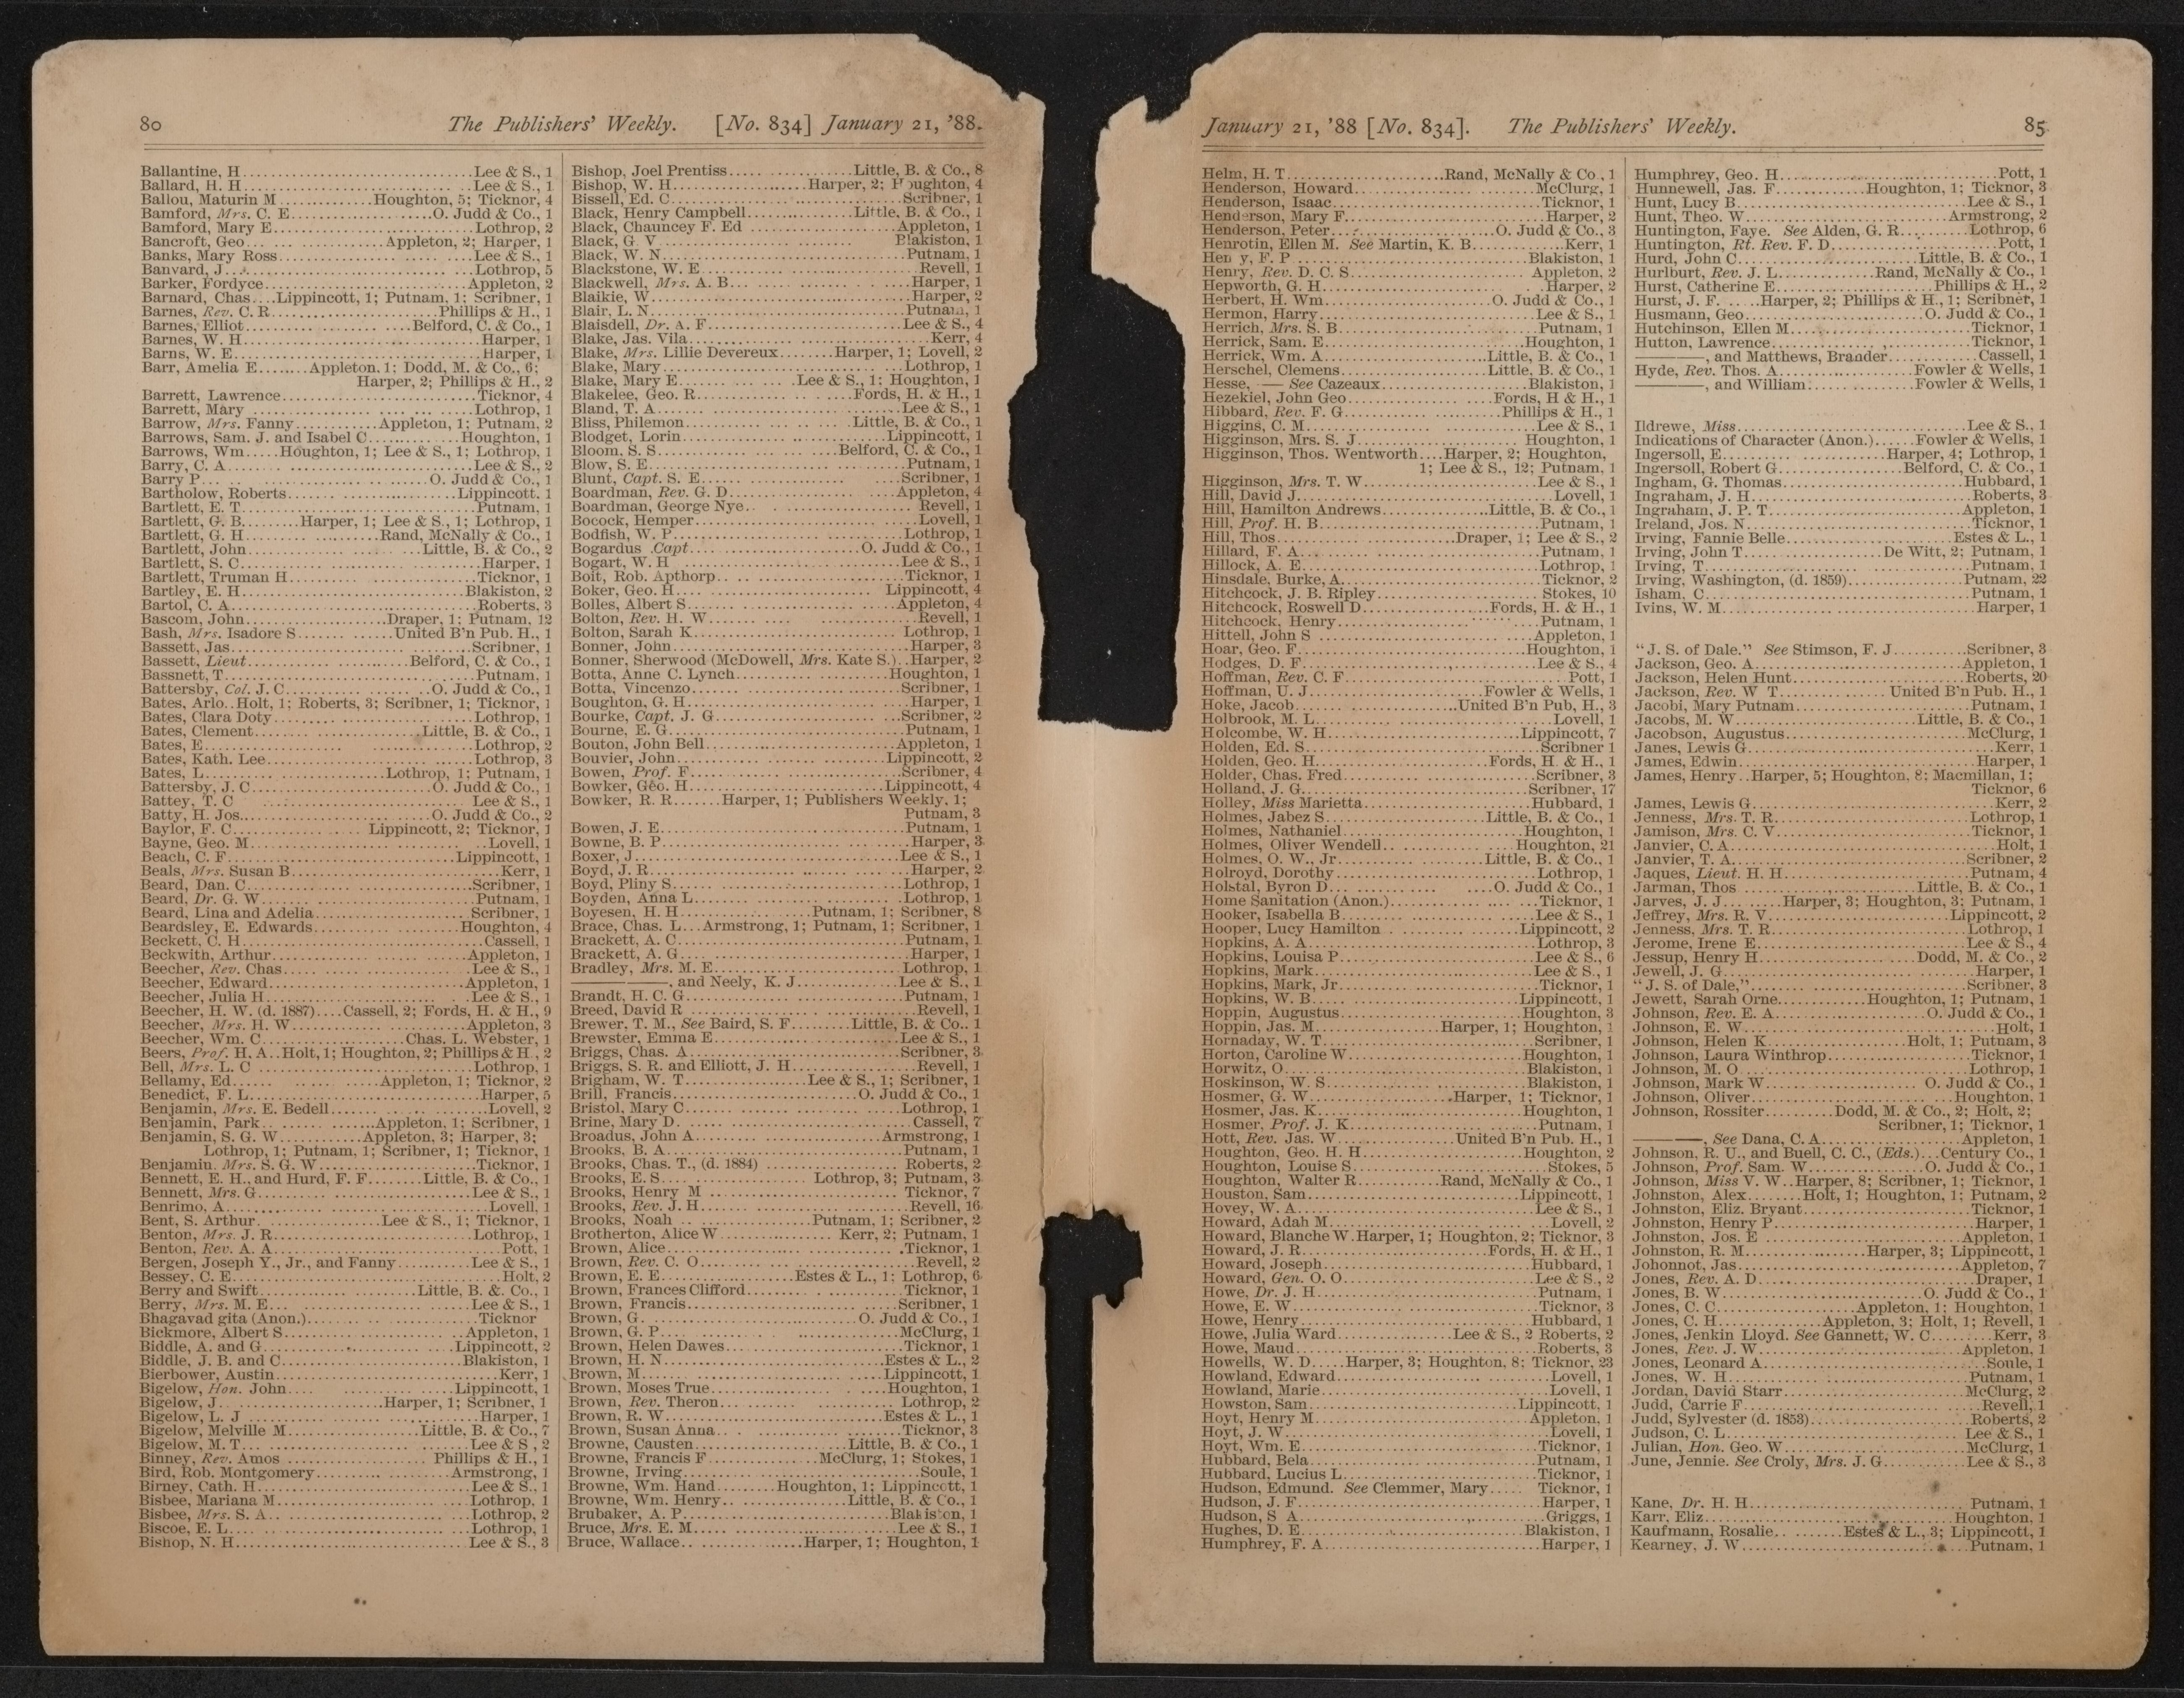 80 The Publishers' Weekly. [No. 834] January 21, '88.
Ballantine, H. Lee & S., 1
Ballard, H. H. Lee & S., 1
Ballou, Maturin M. Houghton, 5; Ticknor, 4
Bamford, Mrs. C. E. O. Judd & Co., 1
Bamford, Mary E. Lothrop, 2
Bancroft, Geo. Appleton, 2; Harper, 1
Banks, Mary Ross. Lee & S., 1
Banvard, J. Lothrop, 5
Barker, Fordyce. Appleton, 2
Barnard, Chas. Lippincott, 1; Putnam, 1; Scribner, 1
Barnes, Rev. C. R. Phillips & H., 1
Barnes, Elliot. Belford, C. & Co., 1
Barnes, W. H. Harper, 1
Barns, W. E. Harper, 1
Barr, Amelia E. Appleton, 1; Dodd, M. & Co., 6;
Harper, 2; Phillips & H., 2
Barrett, Lawrence. Ticknor, 4
Barrett, Mary Lothrop, 1
Barrow, Mrs. Fanny. Appleton, 1; Putnam, 2
Barrows, Sam. J. and Isabel C. Houghton, 1
Barrows, Wm. Houghton, 1; Lee & S., 1; Lothrop, 1
Barry, C. A. Lee & S., 2
Barry P. O. Judd & Co., 1
Bartholow, Roberts. Lippincott. 1
Bartlett, E. T. Putnam, 1
Bartlett, G. B. Harper, 1; Lee & S., 1; Lothrop, 1
Bartlett, G. H. Rand, McNally & Co., 1
Bartlett, John. Little, B. & Co., 2
Bartlett, S. C. Harper, 1
Bartlett, Truman H. Ticknor, 1
Bartley, E. H. Blakiston, 2
Bartol, C. A. Roberts, 3
Bascom, John. Draper, 1; Putnam, 12
Bash, Mrs. Isadore S. United B'n Pub. H., 1
Bassett, Jas. Scribner, 1
Bassett, Lieut. Belford, C. & Co., 1
Bassnett, T. Putnam, 1
Battersby, Col. J. C. O. Judd & Co., 1
Bates, Arlo. Holt, 1; Roberts, 3; Scribner, 1; Ticknor, 1
Bates, Clara Doty. Lothrop, 1
Bates, Clement. Little, B. & Co., 1
Bates, E. Lothrop, 2
Bates, Kath. Lee. Lothrop, 3
Bates, L. Lothrop, 1; Putnam, 1
Battersby, J. C. O. Judd & Co., 1
Battey, T. C Lee & S., 1
Batty, H. Jos. O. Judd & Co., 2
Baylor, F. C. Lippincott, 2; Ticknor, 1
Bayne, Geo. M. Lovell, 1
Beach, C. F. Lippincott, 1
Beals, Mrs. Susan B. Kerr, 1
Beard, Dan. C. Scribner, 1
Beard, Dr. G. W. Putnam, 1
Beard, Lina and Adelia. Scribner, 1
Beardsley, E. Edwards. Houghton, 4
Beckett, C. H. Cassell, 1
Beckwith, Arthur. Appleton, 1
Beecher, Rev. Chas. Lee & S., 1
Beecher, Edward. Appleton, 1
Beecher, Julia H. Lee & S., 1
Beecher, H. W. (d. 1887). Cassell, 2; Fords, H. & H., 9
Beecher, Mrs. H. W. Appleton, 3
Beecher, Wm. C. Chas. L. Webster, 1
Beers, Prof. H. A. Holt, 1; Houghton, 2; Phillips & H., 2
Bell, Mrs. L. C Lothrop, 1
Bellamy, Ed. Appleton, 1; Ticknor, 2
Benedict, F. L. Harper, 5
Benjamin, Mrs. E. Bedell. Lovell, 2
Benjamin, Park. Appleton, 1; Scribner, 1
Benjamin, S. G. W. Appleton, 3; Harper, 3;
Lothrop, 1; Putnam, 1; Scribner, 1; Ticknor, 1
Benjamin. Mrs. S. G. W. Ticknor, 1
Bennett, E. H., and Hurd, F. F. Little, B. & Co., 1
Bennett, Mrs. G. Lee & S., 1
Benrimo, A. Lovell, 1
Bent, S. Arthur. Lee & S., 1; Ticknor, 1
Benton, Mrs. J. R. Lothrop, 1
Benton, Rev. A. A. Pott, 1
Bergen, Joseph Y., Jr., and Fanny. Lee & S., 1
Bessey, C. E. Holt, 2
Berry and Swift. Little, B. &. Co., 1
Berry, Mrs. M. E. Lee & S., 1
Bhagavad gita (Anon.). Ticknor
Bickmore, Albert S. Appleton, 1
Biddle, A. and G. Lippincott, 2
Biddle, J. B. and C. Blakiston, 1
Bierbower, Austin. Kerr, 1
Bigelow, Hon. John. Lippincott, 1
Bigelow, J. Harper, 1; Scribner, 1
Bigelow, L. J Harper, 1
Bigelow, Melville M. Little, B. & Co., 7
Bigelow, M. T. Lee & S , 2
Binney, Rev. Amos Phillips & H., 1
Bird, Rob. Montgomery. Armstrong, 1
Birney, Cath. H. Lee & S., 1
Bisbee, Mariana M. Lothrop, 1
Bisbee, Mrs. S. A. Lothrop, 2
Biscoe, E. L. Lothrop, 1
Bishop, N. H. Lee & S., 3
Bishop, Joel Prentiss. Little, B. & Co., 8
Bishop, W. H. Harper, 2; Houghton, 4
Bissell, Ed. C. Scribner, 1
Black, Henry Campbell. Little, B. & Co., 1
Black, Chauncey F. Ed Appleton, 1
Black, G. V Blakiston, 1
Black, W. N. Putnam, 1
Blackstone, W. E. Revell, 1
Blackwell, Mrs. A. B. Harper, 1
Blaikie, W. Harper, 2
Blair, L. N. Putnam, 1
Blaisdell, Dr. A. F. Lee & S., 4
Blake, Jas. Vila. Kerr, 4
Blake, Mrs. Lillie Devereux. Harper, 1; Lovell, 2
Blake, Mary. Lothrop, 1
Blake, Mary E. Lee & S., 1; Houghton, 1
Blakelee, Geo. R. Fords, H. & H., 1
Bland, T. A. Lee & S., 1
Bliss, Philemon. Little, B. & Co., 1
Blodget, Lorin. Lippincott, 1
Bloom, S. S. Belford, C. & Co., 1
Blow, S. E. Putnam, 1
Blunt, Capt. S. E. Scribner, 1
Boardman, Rev. G. D. Appleton, 4
Boardman, George Nye. Revell, 1
Bocock, Hemper. Lovell, 1
Bodfish, W. P. Lothrop, 1
Bogardus Capt. O. Judd & Co., 1
Bogart, W. H Lee & S., 1
Boit, Rob. Apthorp. Ticknor, 1
Boker, Geo. H. Lippincott, 4
Bolles, Albert S. Appleton, 4
Bolton, Rev. H. W. Revell, 1
Bolton, Sarah K. Lothrop, 1
Bonner, John. Harper, 3
Bonner, Sherwood (McDowell, Mrs. Kate S.). Harper, 2
Botta, Anne C. Lynch. Houghton, 1
Botta, Vincenzo. Scribner, 1
Boughton, G. H. Harper, 1
Bourke, Capt. J. G. Scribner, 2
Bourne, E. G. Putnam, 1
Bouton, John Bell. Appleton, 1
Bouvier, John. Lippincott, 2
Bowen, Prof. F. Scribner, 4
Bowker, Geo. H. Lippincott, 4
Bowker, R. R. Harper, 1; Publishers Weekly, 1;
Putnam, 3
Bowen, J. E. Putnam, 1
Bowne, B. P. Harper, 3
Boxer, J. Lee & S., 1
Boyd, J. R. Harper, 2
Boyd, Pliny S. Lothrop, 1
Boyden, Anna L. Lothrop, 1
Boyesen, H. H. Putnam, 1; Scribner, 8
Brace, Chas. L. Armstrong, 1; Putnam, 1; Scribner, 1
Brackett, A. C. Putnam, 1
Brackett, A. G. Harper, 1
Bradley, Mrs. M. E. Lothrop, 1
———, and Neely, K. J. Lee & S., 1
Brandt, H. C. G. Putnam, 1
Breed, David R Revell, 1
Brewer, T. M., See Baird, S. F. Little, B. & Co.. 1
Brewster, Emma E. Lee & S., 1
Briggs, Chas. A. Scribner, 3
Briggs, S. R. and Elliott, J. H. Revell, 1
Brigham, W. T. Lee & S., 1; Scribner, 1
Brill, Francis. O. Judd & Co., 1
Bristol, Mary C. Lothrop, 1
Brine, Mary D. Cassell, 7
Broadus, John A. Armstrong, 1
Brooks, B. A. Putnam, 1
Brooks, Chas. T., (d. 1884) Roberts, 2
Brooks, E. S. Lothrop, 3; Putnam, 3
Brooks, Henry M Ticknor, 7
Brooks, Rev. J. H. Revell, 16
Brooks, Noah Putnam, 1; Scribner, 2
Brotherton, Alice W Kerr, 2; Putnam, 1
Brown, Alice. Ticknor, 1
Brown, Rev. C. O. Revell, 2
Brown, E. E. Estes & L., 1; Lothrop, 6
Brown, Frances Clifford. Ticknor, 1
Brown, Francis. Scribner, 1
Brown, G. O. Judd & Co., 1
Brown, G. P. McClurg, 1
Brown, Helen Dawes. Ticknor, 1
Brown, H. N. Estes & L., 2
Brown, M. Lippincott, 1
Brown, Moses True. Houghton, 1
Brown, Rev. Theron. Lothrop, 2
Brown, R. W. Estes & L., 1
Brown, Susan Anna. Ticknor, 3
Browne, Causten. Little, B. & Co., 1
Browne, Francis F McClurg, 1; Stokes, 1
Browne, Irving. Soule, 1
Browne, Wm. Hand. Houghton, 1; Lippincott, 1
Browne, Wm. Henry. Little, B. & Co., 1
Brubaker, A. P. Blakiston, 1
Bruce, Mrs. E. M. Lee & S., 1
Bruce, Wallace. Harper, 1; Houghton, 1
January 21, '88 [No. 834]. The Publishers' Weekly. 85
Helm, H. T. Rand, McNally & Co., 1
Henderson, Howard. McClurg, 1
Henderson, Isaac. Ticknor, 1
Henderson, Mary F. Harper, 2
Henderson, Peter. O. Judd & Co., 3
Henrotin, Ellen M. See Martin, K. B. Kerr, 1
Hen y, F. P Blakiston, 1
Henry, Rev. D. C. S. Appleton, 2
Hepworth, G. H. Harper, 2
Herbert, H. Wm. O. Judd & Co., 1
Hermon, Harry. Lee & S., 1
Herrich, Mrs. S. B. Putnam, 1
Herrick, Sam. E. Houghton, 1
Herrick, Wm. A. Little, B. & Co., 1
Herschel, Clemens. Little, B. & Co., 1
Hesse, — See Cazeaux. Blakiston, 1
Hezekiel, John Geo. Fords, H & H., 1
Hibbard, Rev. F. G. Phillips & H., 1
Higgins, C. M. Lee & S., 1
Higginson, Mrs. S. J. Houghton, 1
Higginson, Thos. Wentworth. Harper, 2; Houghton,
1; Lee & S., 12; Putnam, 1
Higginson, Mrs. T. W. Lee & S., 1
Hill, David J. Lovell, 1
Hill, Hamilton Andrews. Little, B. & Co., 1
Hill, Prof. H. B. Putnam, 1
Hill, Thos. Draper, 1; Lee & S., 2
Hillard, F. A. Putnam, 1
Hillock, A. E. Lothrop, 1
Hinsdale, Burke, A. Ticknor, 2
Hitchcock, J. B. Ripley. Stokes, 10
Hitchcock, Roswell D. Fords, H. & H., 1
Hitchcock, Henry. Putnam, 1
Hittell, John S Appleton, 1
Hoar, Geo. F. Houghton, 1
Hodges, D. F. Lee & S., 4
Hoffman, Rev. C. F. Pott, 1
Hoffman, U. J. Fowler & Wells, 1
Hoke, Jacob. United B'n Pub, H., 3
Holbrook, M. L. Lovell, 1
Holcombe, W. H. Lippincott, 7
Holden, Ed. S. Scribner 1
Holden, Geo. H. Fords, H. & H., 1
Holder, Chas. Fred. Scribner, 3
Holland, J. G. Scribner, 17
Holley, Miss Marietta. Hubbard, 1
Holmes, Jabez S. Little, B. & Co., 1
Holmes, Nathaniel. Houghton, 1
Holmes, Oliver Wendell. Houghton, 21
Holmes, O. W., Jr. Little, B. & Co., 1
Holroyd, Dorothy. Lothrop, 1
Holstal, Byron D. O. Judd & Co., 1
Home Sanitation (Anon.). Ticknor, 1
Hooker, Isabella B. Lee & S., 1
Hooper, Lucy Hamilton Lippincott, 2
Hopkins, A. A. Lothrop, 3
Hopkins, Louisa P. Lee & S., 6
Hopkins, Mark. Lee & S., 1
Hopkins, Mark, Jr. Ticknor, 1
Hopkins, W. B. Lippincott, 1
Hoppin, Augustus. Houghton, 3
Hoppin, Jas. M. Harper, 1; Houghton, 1
Hornaday, W. T. Scribner, 1
Horton, Caroline W. Houghton, 1
Horwitz, O. Blakiston, 1
Hoskinson, W. S. Blakiston, 1
Hosmer, G. W. Harper, 1; Ticknor, 1
Hosmer, Jas. K. Houghton, 1
Hosmer, Prof. J. K. Putnam, 1
Hott, Rev. Jas. W. United B'n Pub. H., 1
Houghton, Geo. H. H. Houghton, 2
Houghton, Louise S. Stokes, 5
Houghton, Walter R. Rand, McNally & Co., 1
Houston, Sam. Lippincott, 1
Hovey, W. A. Lee & S., 1
Howard, Adah M. Lovell, 2
Howard, Blanche W. Harper, 1; Houghton, 2; Ticknor, 3
Howard, J. R. Fords, H. & H., 1
Howard, Joseph. Hubbard, 1
Howard, Gen. O. O. Lee & S., 2
Howe, Dr. J. H. Putnam, 1
Howe, E. W. Ticknor, 3
Howe, Henry. Hubbard, 1
Howe, Julia Ward. Lee & S., 2 Roberts, 2
Howe, Maud. Roberts, 3
Howells, W. D. Harper, 3; Houghton, 8; Ticknor, 23
Howland, Edward. Lovell, 1
Howland, Marie. Lovell, 1
Howston, Sam. Lippincott, 1
Hoyt, Henry M. Appleton, 1
Hoyt, J. W. Lovell, 1
Hoyt, Wm. E. Ticknor, 1
Hubbard, Bela. Putnam, 1
Hubbard, Lucius L. Ticknor, 1
Hudson, Edmund. See Clemmer, Mary. Ticknor, 1
Hudson, J. F. Harper, 1
Hudson, S A. Griggs, 1
Hughes, D. E. Blakiston, 1
Humphrey, F. A. Harper, 1
Humphrey, Geo. H. Pott, 1
Hunnewell, Jas. F. Houghton, 1; Ticknor, 3
Hunt, Lucy B. Lee & S., 1
Hunt, Theo. W. Armstrong, 2
Huntington, Faye. See Alden, G. R. Lothrop, 6
Huntington, Rt. Rev. F. D. Pott, 1
Hurd, John C. Little, B. & Co., 1
Hurlburt, Rev. J. L. Rand, McNally & Co., 1
Hurst, Catherine E. Phillips & H., 2
Hurst, J. F. Harper, 2; Phillips & H., 1; Scribner, 1
Husmann, Geo. O. Judd & Co., 1
Hutchinson, Ellen M. Ticknor, 1
Hutton, Lawrence. Ticknor, 1
———, and Matthews, Brander. Cassell, 1
Hyde, Rev. Thos. A. Fowler & Wells, 1
———, and William. Fowler & Wells, 1
Ildrewe, Miss. Lee & S., 1
Indications of Character (Anon.). Fowler & Wells, 1
Ingersoll, E. Harper, 4; Lothrop, 1
Ingersoll, Robert G. Belford, C. & Co., 1
Ingham, G. Thomas. Hubbard, 1
Ingraham, J. H. Roberts, 3
Ingraham, J. P. T. Appleton, 1
Ireland, Jos. N. Ticknor, 1
Irving, Fannie Belle. Estes & L., 1
Irving, John T. De Witt, 2; Putnam, 1
Irving, T. Putnam, 1
Irving, Washington, (d. 1859). Putnam, 22
Isham, C. Putnam, 1
Ivins, W. M. Harper, 1
"J. S. of Dale." See Stimson, F. J. Scribner, 3
Jackson, Geo. A. Appleton, 1
Jackson, Helen Hunt. Roberts, 20
Jackson, Rev. W T. United B'n Pub. H., 1
Jacobi, Mary Putnam. Putnam, 1
Jacobs, M. W. Little, B. & Co., 1
Jacobson, Augustus. McClurg, 1
Janes, Lewis G. Kerr, 1
James, Edwin. Harper, 1
James, Henry. Harper, 5; Houghton, 8; Macmillan, 1;
Ticknor, 6
James, Lewis G. Kerr, 2
Jenness, Mrs. T. R. Lothrop, 1
Jamison, Mrs. C. V. Ticknor, 1
Janvier, C. A. Holt, 1
Janvier, T. A. Scribner, 2
Jaques, Lieut. H. H. Putnam, 4
Jarman, Thos Little, B. & Co., 1
Jarves, J. J. Harper, 3; Houghton, 3; Putnam, 1
Jeffrey, Mrs. R. V. Lippincott, 2
Jenness, Mrs. T. R. Lothrop, 1
Jerome, Irene E. Lee & S., 4
Jessup, Henry H. Dodd, M. & Co., 2
Jewell, J. G. Harper, 1
"J. S. of Dale," Scribner, 3
Jewett, Sarah Orne. Houghton, 1; Putnam, 1
Johnson, Rev. E. A. O. Judd & Co., 1
Johnson, E. W. Holt, 1
Johnson, Helen K. Holt, 1; Putnam, 3
Johnson, Laura Winthrop. Ticknor, 1
Johnson, M. O Lothrop, 1
Johnson, Mark W. O. Judd & Co., 1
Johnson, Oliver. Houghton, 1
Johnson, Rossiter. Dodd, M. & Co., 2; Holt, 2;
Scribner, 1; Ticknor, 1
———, See Dana, C. A. Appleton, 1
Johnson, R. U., and Buell, C. C., (Eds.). Century Co., 1
Johnson, Prof. Sam. W. O. Judd & Co., 1
Johnson, Miss V. W. Harper, 8; Scribner, 1; Ticknor, 1
Johnston, Alex. Holt, 1; Houghton, 1; Putnam, 2
Johnston, Eliz. Bryant. Ticknor, 1
Johnston, Henry P. Harper, 1
Johnston, Jos. E Appleton, 1
Johnston, R. M. Harper, 3; Lippincott, 1
Johonnot, Jas. Appleton, 7
Jones, Rev. A. D. Draper, 1
Jones, B. W. O. Judd & Co., 1
Jones, C. C. Appleton, 1; Houghton, 1
Jones, C. H. Appleton, 3; Holt, 1; Revell, 1
Jones, Jenkin Lloyd. See Gannett, W. C. Kerr, 3
Jones, Rev. J. W. Appleton, 1
Jones, Leonard A. Soule, 1
Jones, W. H Putnam, 1
Jordan, David Starr. McClurg, 2
Judd, Carrie F Revell, 1
Judd, Sylvester (d. 1853). Roberts, 2
Judson, C. L. Lee & S., 1
Julian, Hon. Geo. W. McClurg, 1
June, Jennie. See Croly, Mrs. J. G. Lee & S., 3
Kane, Dr. H. H. Putnam, 1
Karr, Eliz. Houghton, 1
Kaufmann, Rosalie. Estes & L., 3; Lippincott, 1
Kearney, J. W. Putnam, 1